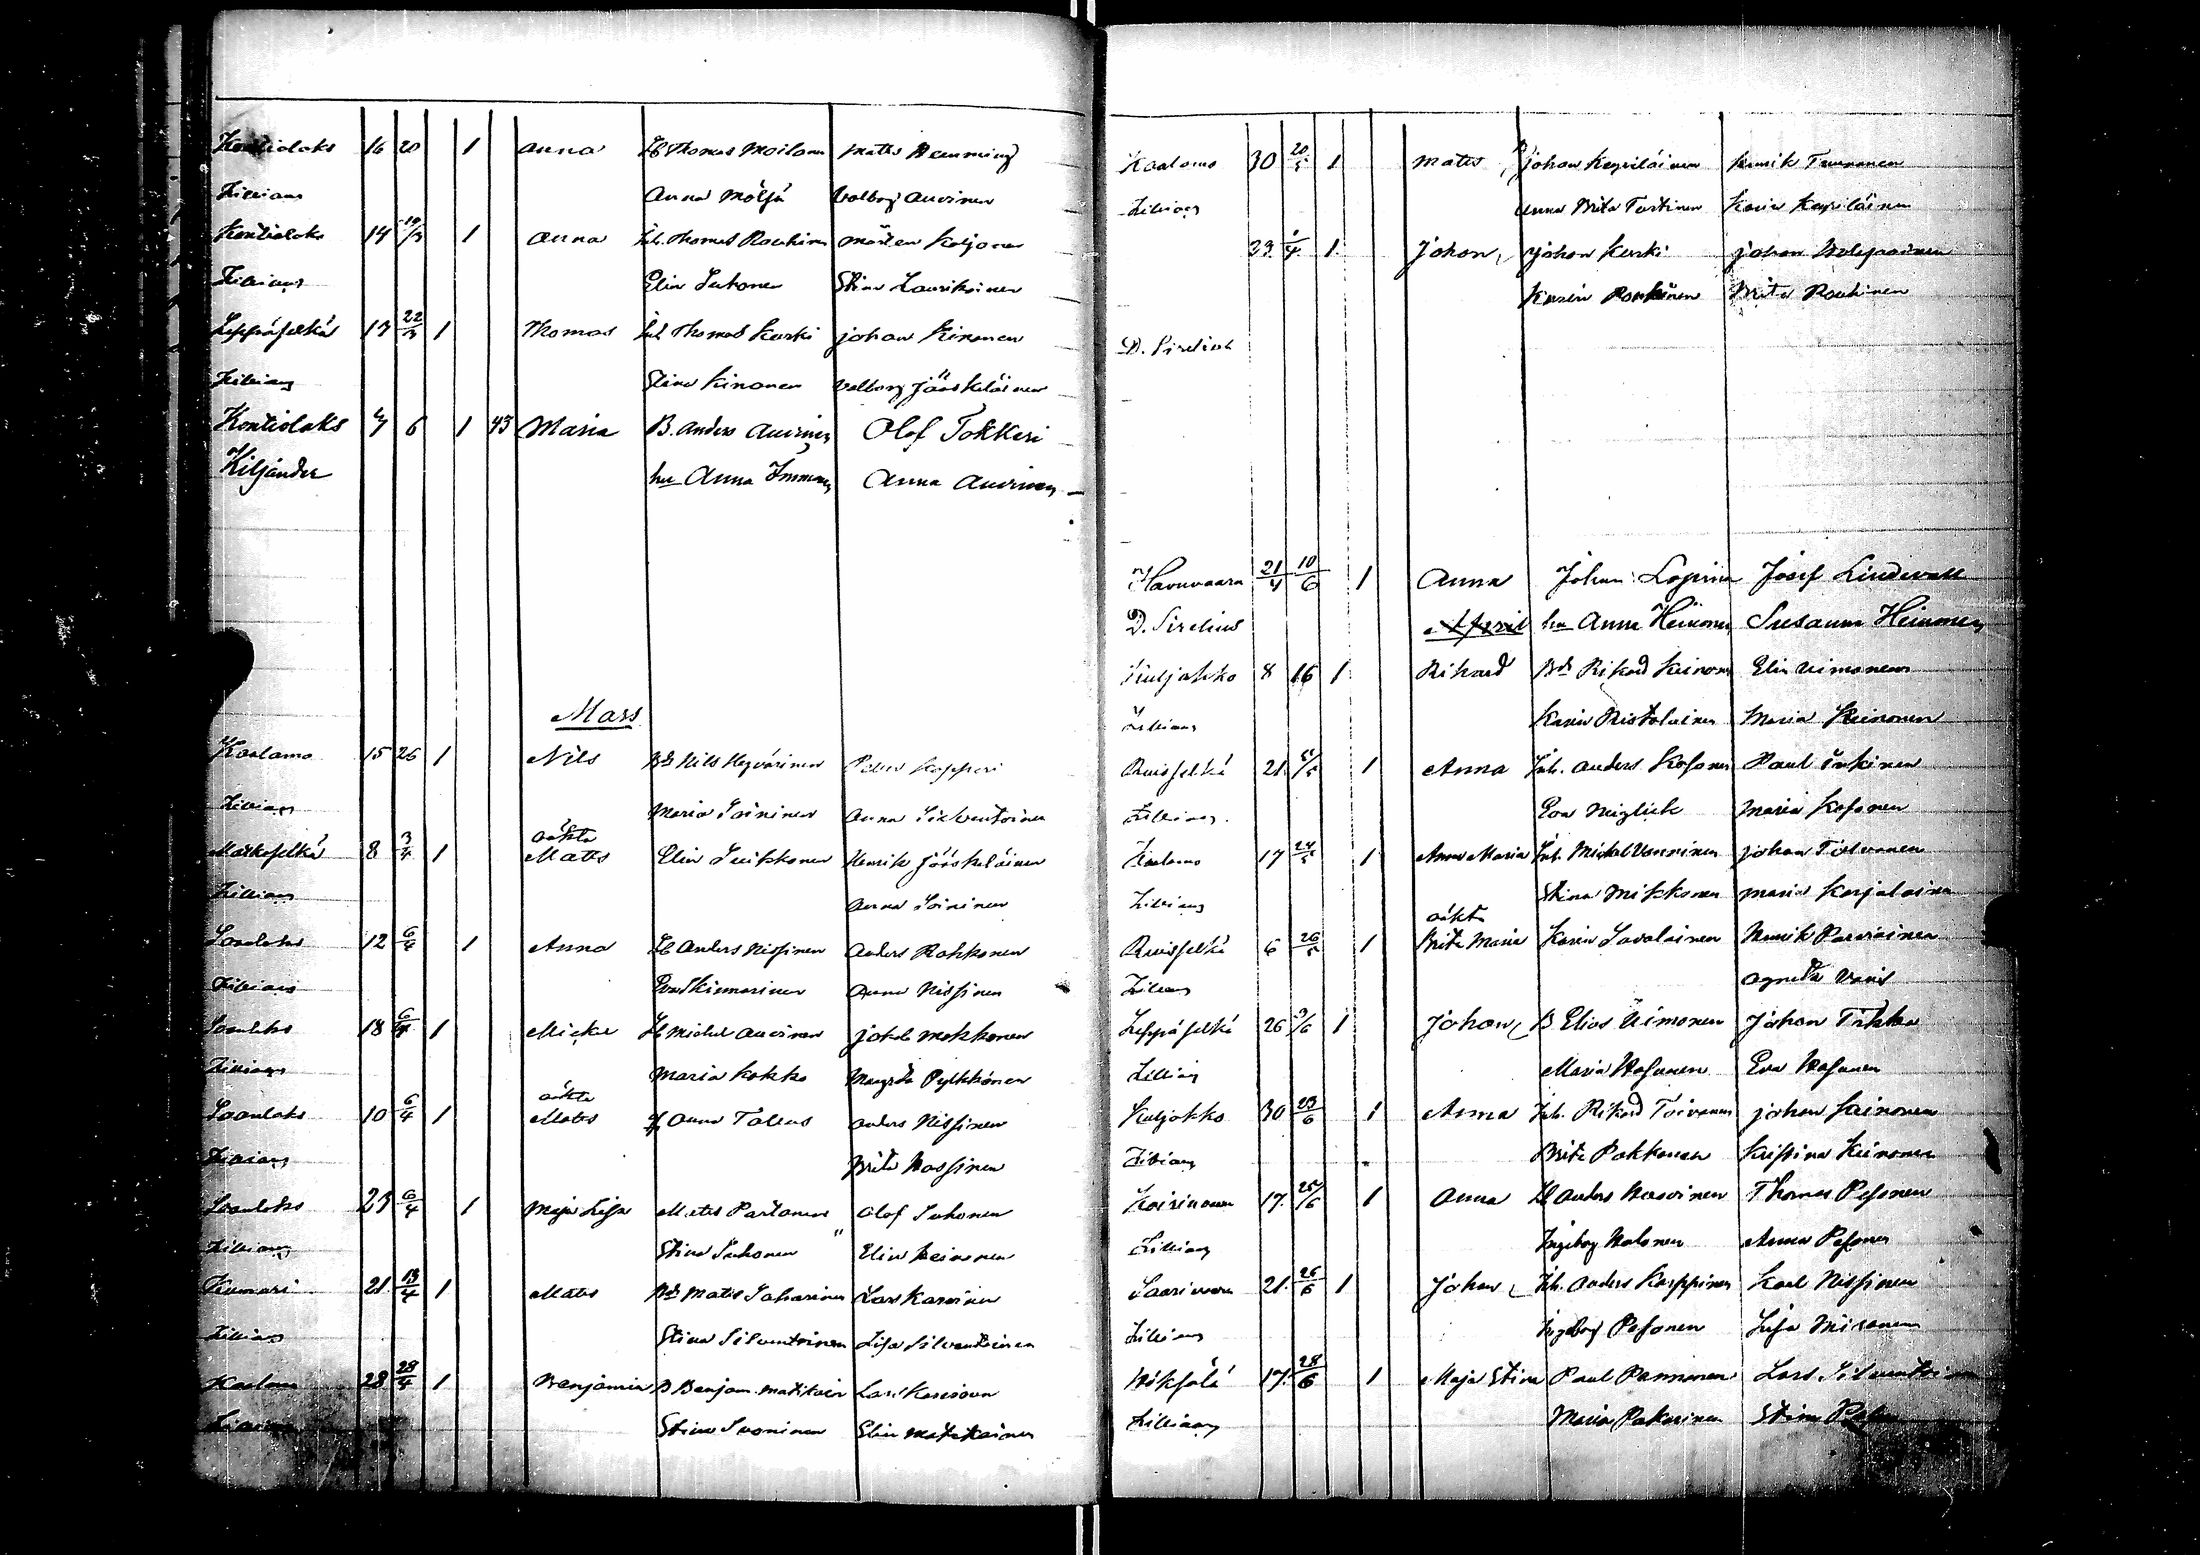 Kontiolaks 16 20 1 Anna Thomas Moilanen Matts Hemming
Zilliaus Anna Mölsä Valborg Auvinen
Kontiolaks 14 10/3 1 Anna Inh. Thomas Rouhinen Mårten Koljonen
Zilliaus Elin Suhonen Stina Laurikainen
Leppäselkä 13 22/3 1 Thomas Inh Thomas Kurki johan Kinonen
Zilliaus Stina Kinonen Valborg Jääskeläinen
Kontiolaks 6 1 43 Maria B. Anders Auvinen Olof Tokkeri
Kiljander hu Anna Immonen Anna Auvinen
Mars
Kaalamo 15 26 1 Nils Bd Nils Hyvärinen Petter Kopperi
Zilliaus Maria Soininen Anna Silventoinen
oäkta
Matkaselkä 8 3/4 1 Matts Elin Suikkonen Henrik Jääskeläinen
Zilliaus Anna Soininen
Soanlaks 12 6/4 1 Anna Anders Nissinen Anders Rahkonen
Zilliaus Anna Nissinen
Soanlaks 18 6/4 1 Mickel Michel Auvinen jakob Mokkonen
Zilliaus Maria Kokko Margreta Pylkkönen
oäkta
Soanlaks 10 6/4 1 Matts Anna Anders Nissinen
Zilliaus Brita Nassinen
Soanlaks 23 6/4 1 Maja Lisa Matts Partanen Olof Suhonen
Zilliaus Stina Suhonen Elin Keinonen
Kumuri 21 13/4 1 Matts Bd Matts Saharinen Lars Karvinen
Zilliaus Stina Silventoinen Lisa Silventoinen
Kaalamo 28 28/4 1 Benjamin B Benjam. Matikain Lars
Zilliaus Stina Soininen Elin Matikainen
Kaalamo 30 20/5 1 Matts Johan Keyriläinen Henrik Turunen
Zilliaus Anna Brita Tertinen Karin Keyriläinen
23 1/4 1 Johan johan Kurki johan Holopainen
Karin Rouhinen Brita Rouhinen
D. Sirelius
Havuvaara 21/4 10/6 1 Anna Johan Loprin Josef Lindevall
D. Sirelius April hu Anna Heinonen Susanna Heinonen
Kuljakko 8 16 1 Rikard Bd Rikard Keinonen Elin Uimonen
Zilliaus Karin Ristolainen Maria Keinonen
Ruisselkä 21 5/5 1 Anna Inh. Anders Kosonen Paul Inkinen
Zilliaus Eva Miglick Maria Kosonen
Kaalamo 17 24/5 1 Anna Maria Inh. Michel Vanninen johan Tolvanen
Zilliaus Stina Mikkonen Maria Karjalainen
oäkta
Ruisselkä 6 26/5 1 Brita Maria Karin Savolainen Henrik Parviainen
Zilliaus Agneta
Leppäselkä 26 9/6 1 Johan B Elias Uimonen Johan Tikka
Zilliaus Maria Hosunen Eva Hosunen
Kuljakko 30 23/6 1 Anna Inh. Rikard Toivanen johan Keinonen
Zilliaus Brita Pakkonen Kristina Keinonen
Koirinoja 17 25/6 1 Anna Anders Thomas Pesonen
Zilliaus Ingeborg Halonen Anna Pesonen
Saarivaara 21 26/6 1 Johan Inh. Anders Karppinen Karl Nissinen
Zilliaus Ingeborg Pesonen Lisa Mironen
17 28/6 1 Maja Stina Paul Pannonen Lars Silventoinen
Zilliaus Maria Pakarinen Stina